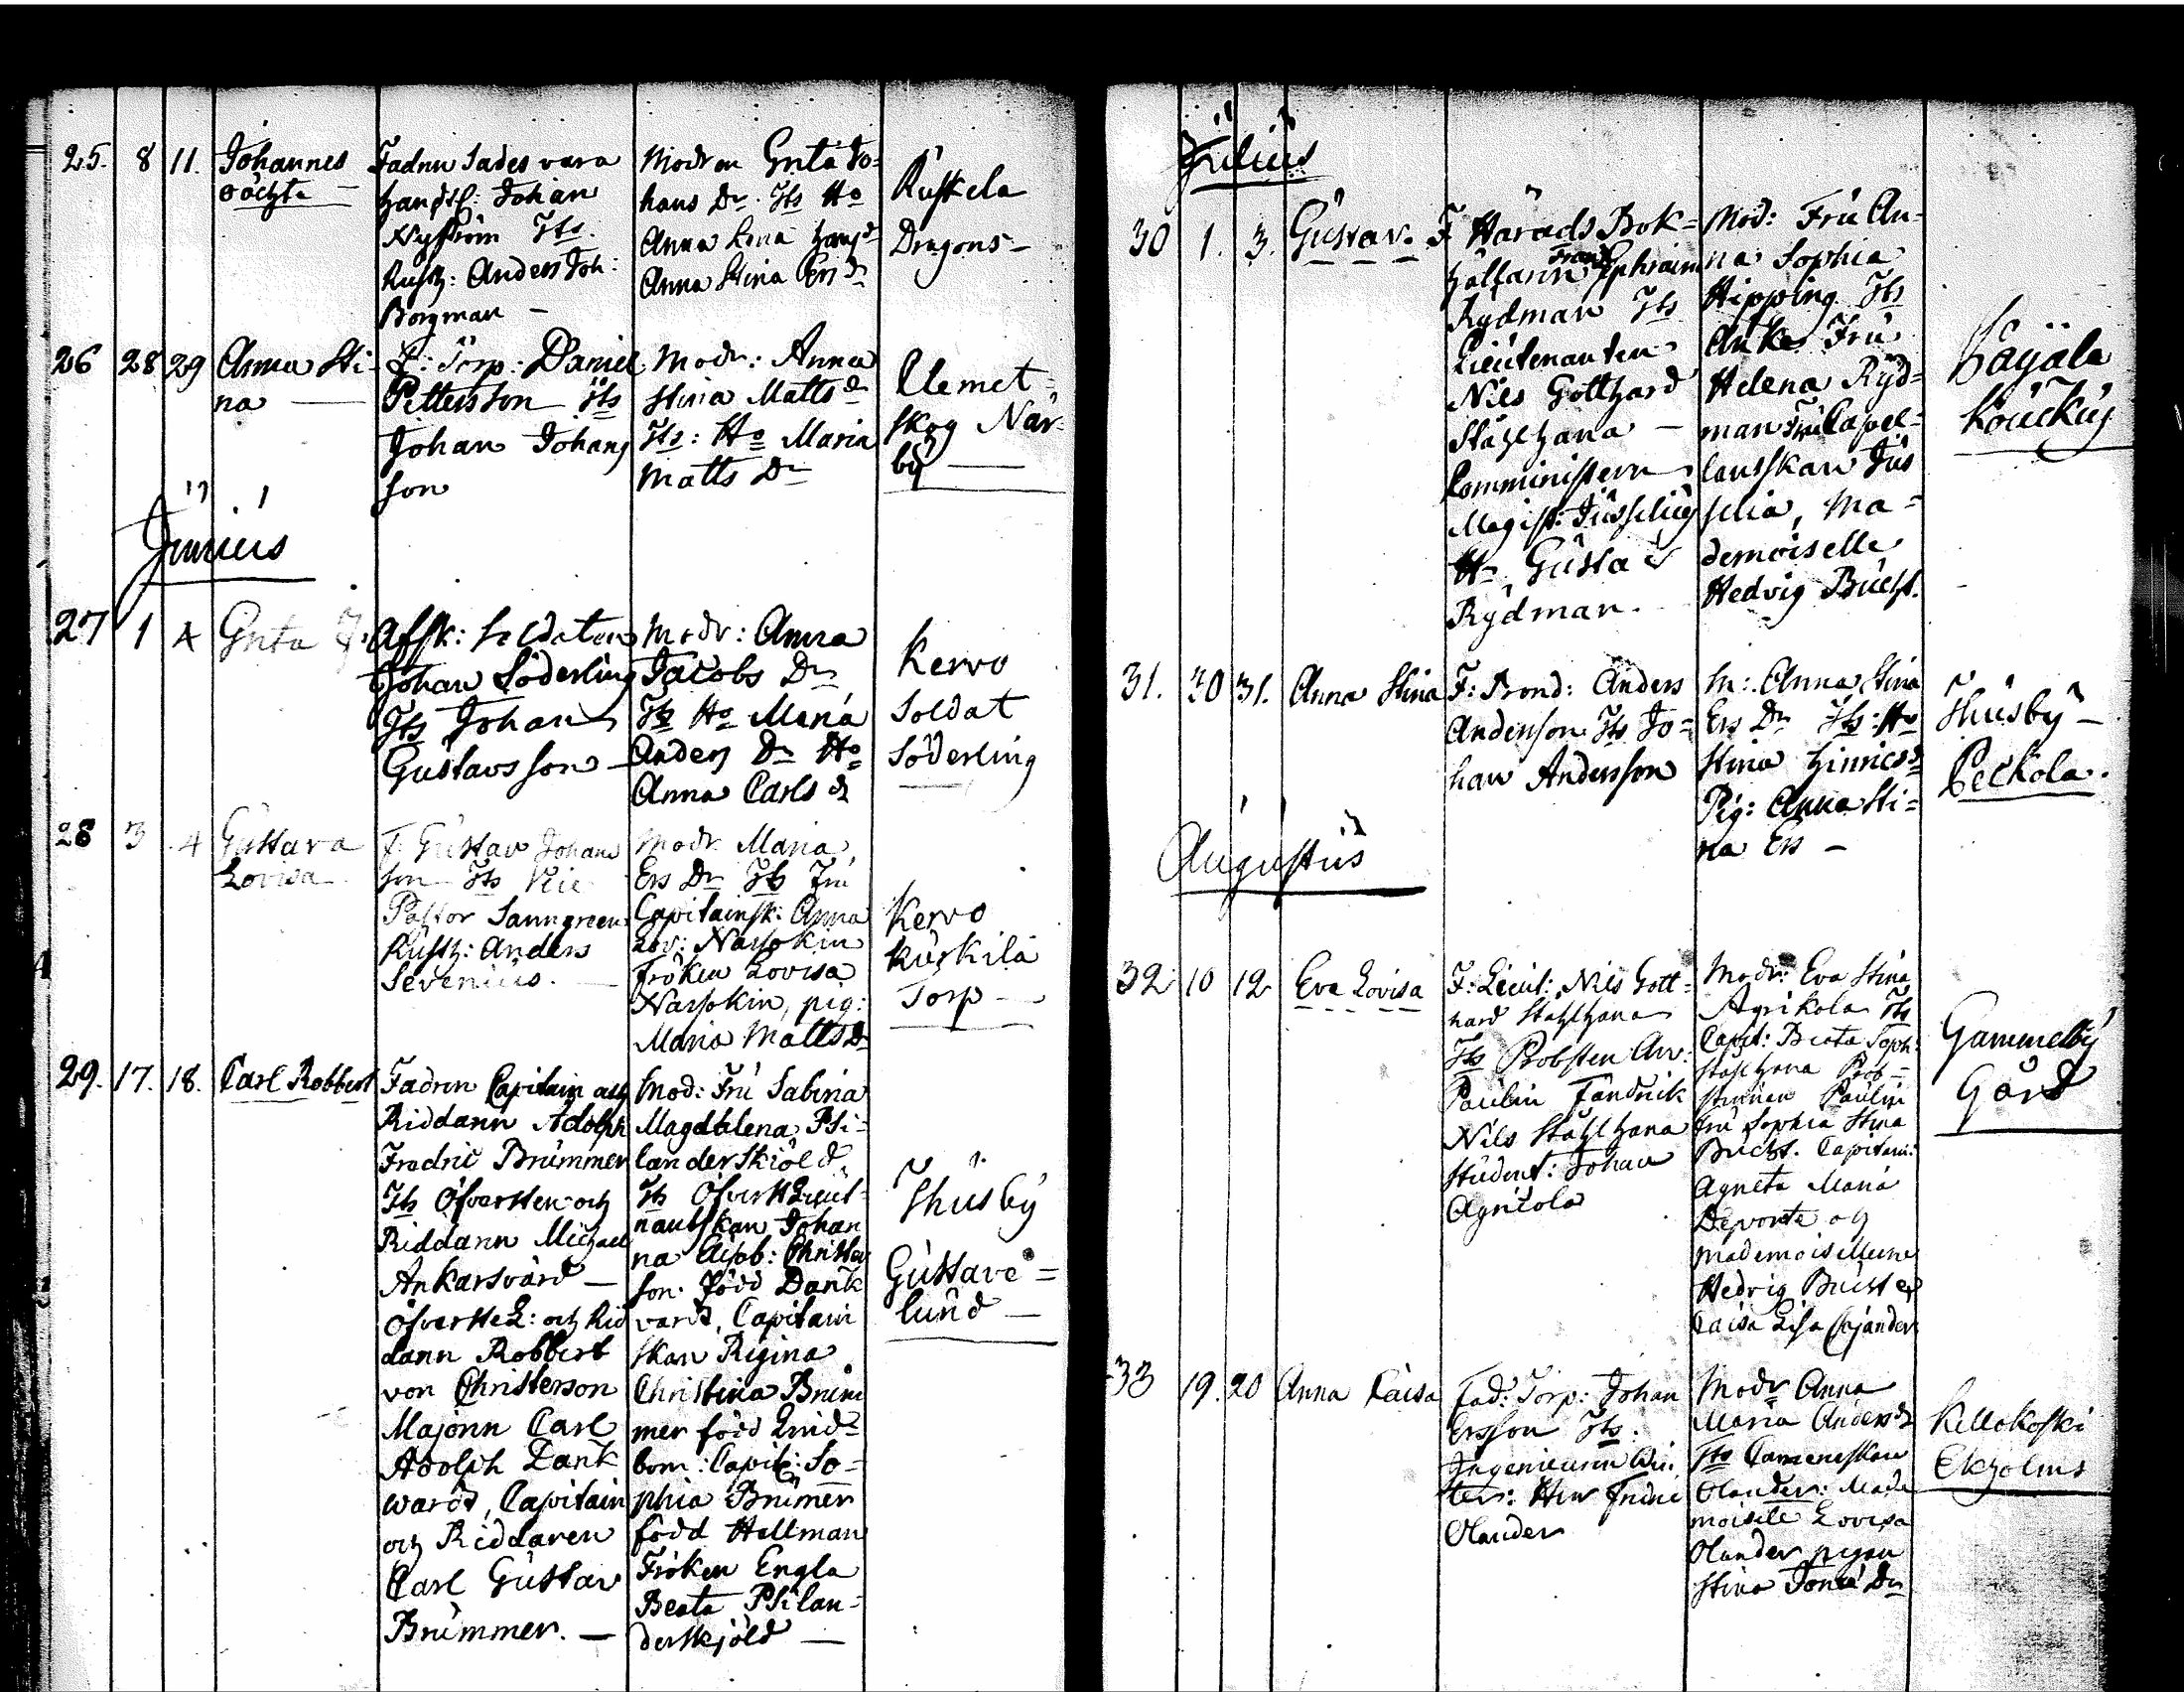 25. 8 11. Johannes
oächta
Fadren sades vara
handtl: Johan
Nyström Fts.
Rusth: Anders Joh:
Borgman
Modren Greta Jo=
hans Dr. Fts Ho
Anna Lena hansdr
Anna Stina Ersdr
Ruskela
Dragons
26 28 29 Anna Sti-
na
F: Torp: Daniel
Petterson Fts
Johan Johans
son
Modr: Anna
Stina Mattsdr
Fts: Ho Maria
Matts Dr
Clemet=
skog När-
by
Junius
27 1 4 Greta
F. Afsk: Soldaten
Johan Söderling
Fts Johan
Gustavsson
Modr: Anna
Jacobs Dr
Fts Ho Maria
Anders Dr Ho
Anna Carls dr
Kervo
Soldat
Söderling
28 3 4 Gustava
Lovisa
F. Gustav Johans
son Fts Vice
Pastor Sanngreen
Rusth: Anders
Sevenius.
Modr. Maria
Ers Dr Fts Fru
Capitainsk: Anna
Lov: Nassokin
Fröken Lovisa
Nassokin, pig:
Maria Matts Dr
Kervo
kurkila
Torp
29. 17. 18. Carl Robbert
Fadren Capitain och
Riddaren Adolph
Fredric Brummer
Fts Öfversten och
Riddaren Michael
Ankarsvärd
Öfverste L: och Rid
daren Robbert
von Christerson
Majoren Carl
Adolph Dank
wardt, Capitain
och Riddaren
Carl Gustav
Brummer.
Mod: Fru Sabina
Magdalena Psi=
landerskiöld,
Fts Öfverst Lieut=
nantskan Johan
na Elisab: Christer
son. född Dank
vardt, Capitain
skan Regina
Christina Brum
mer född Lind=
bom: Capit: So=
phia Brumer
född Hellman
Fröken Engla
Beata Psilan=
derskjöld
Thusby
Gustave=
lund
Julius
30 1. 3. Gustav.
F Härads Bok=
hållaren Frans Ephraim
Rydman Fts
Lieutenanten
Nils Gotthard
Stahlhana
Comministern
Magist: Jusselius
Hr Gustav
Rydman.
Mod: Fru An-
na Sophia
Hipping Fts
Enke Fru
Helena Ryd=
man Fru Capel=
lanskan Jus
selia, Ma=
demoiselle
Hedvig Bucht.
Käyäla
Kouckuj
31. 30 31. Anna Stina
F: Brond: Anders
Anderson Fts Jo=
han Andersson
M: Anna Stina
Ers Dr Fts: Ho
Stina Hinricsdr
Pig: Anna Sti=
na Ers
Thusby
Peckola.
Augustus
32 10 12 Eva Lovisa
F: Lieut: Nils Gott=
hard Stahlhana
Fts Probsten Arv:
Paulin Fändrick
Nils Stahlhana
Student: Johan
Agricola
Modr: Eva Stina
Agrikola Fts
Capit: Beata Soph:
Stahlhana Prob=
stinnan Paulin
Fru Sophia Stina
Bucht. Capitain:
Agneta Maria
Deponte och
Mademoisellerne
Hedvig Bucht &
Caisa Lisa Cajander
Gammelby
Gård
33 19. 20 Anna Caisa
Fad: Torp: Johan
Ersson Fts:
Ingenieuren
Olander
Modr Anna
Maria Andersdr
Fts
Olander: Made
moisele Lovisa
Olander pigan
Stina
Kellokoski
Ekholms